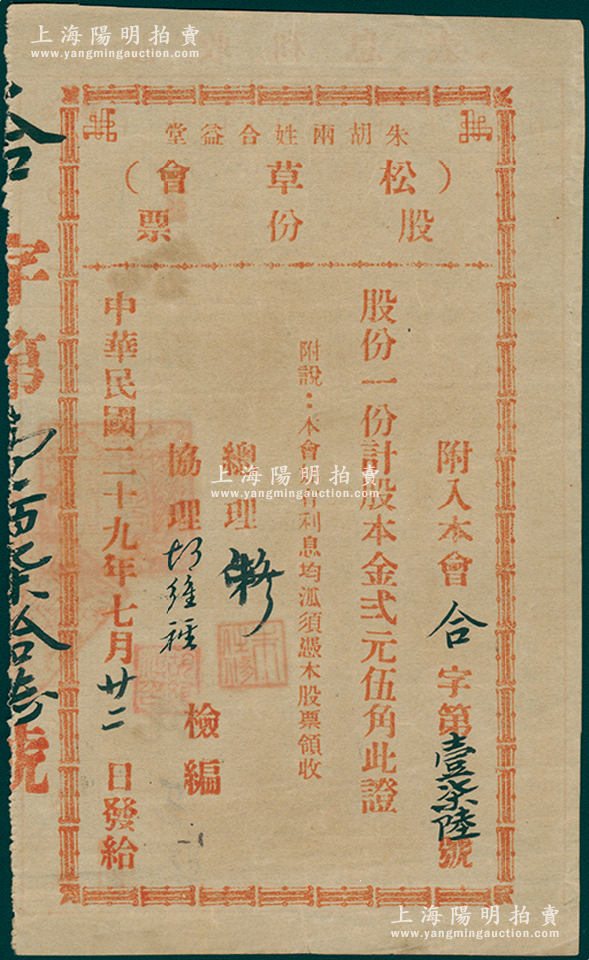 上海陽明拍賣
www.yangmingauction.com
朱胡兩姓合益堂
（松草會）
股份票
附入本會合字第壹柒陸號
股份一份計股本金弍元伍角此證
附說：本會所有利息均派須憑本股票領收
總理
協理胡維
檢編
中華民國二十九年七月廿二日發給
合字第
百柒拾
號
上海陽明拍賣
www.yangmingauction.com
上海陽明拍賣
www.yangmingauction.com